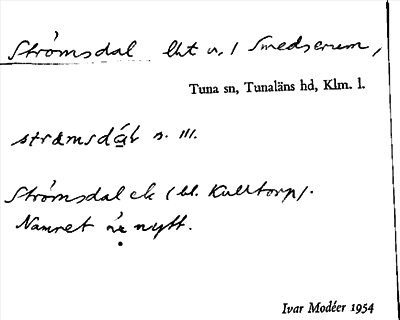 Strömsdal lht u. / Smedserum,
Tuna sn, Tunaläns hd, Klm. l.
strømsdáḷ s. III.
Strömsdal ek (bl. Kulltorp).
Namnet är nytt.
Ivar Modéer 1954